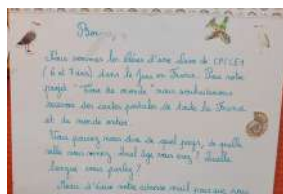 Bon
Nous sommes les élèves d'une classe de CP/CE1
(6 et 7 ans) dans le Jura en France. Dans notre
projet "Tour du monde" nous souhaiterions
recevoir des cartes postales de toute la France
et du monde entier.
Vous pouvez nous dire de quel pays, de quelle
ville vous venez? Quel âge vous avez? Quelle
langue vous parlez?